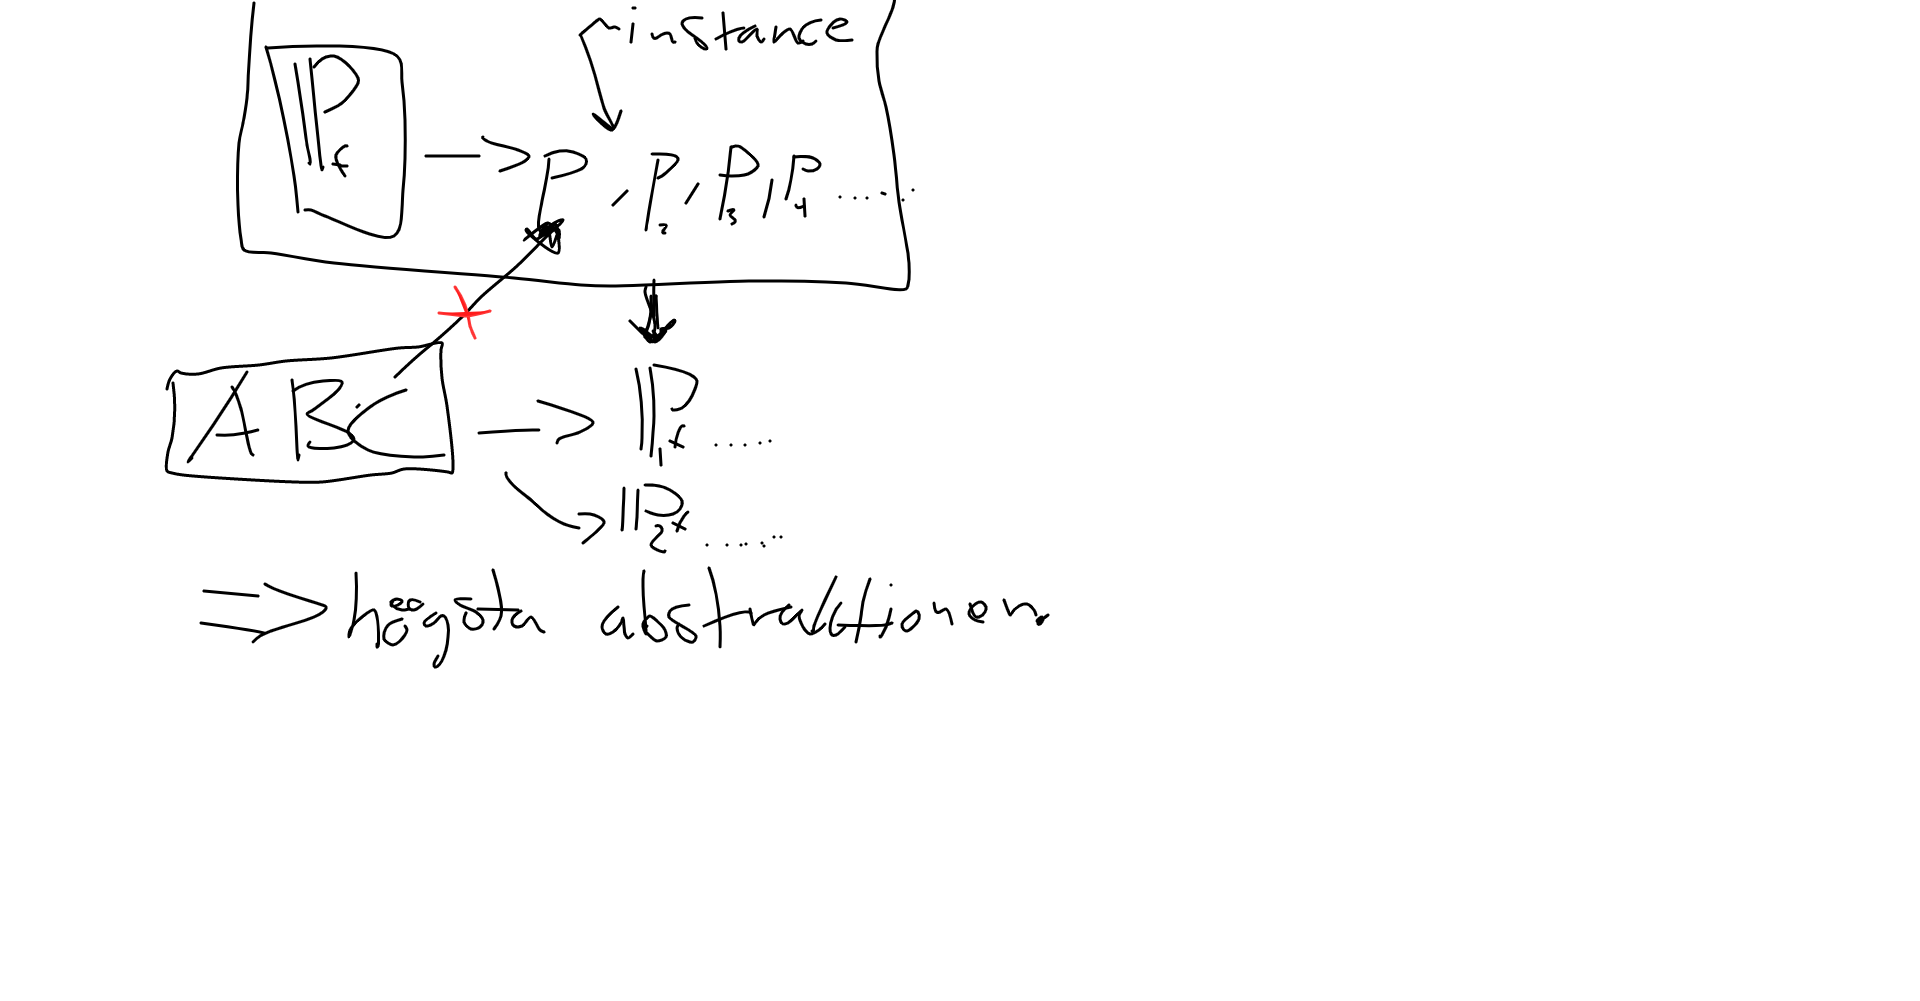 instance
ℙf → P, P2, P3, P4 ......
ABC → ℙ1f .....
ℙ2f ......
⇒ högsta abstraktionen.